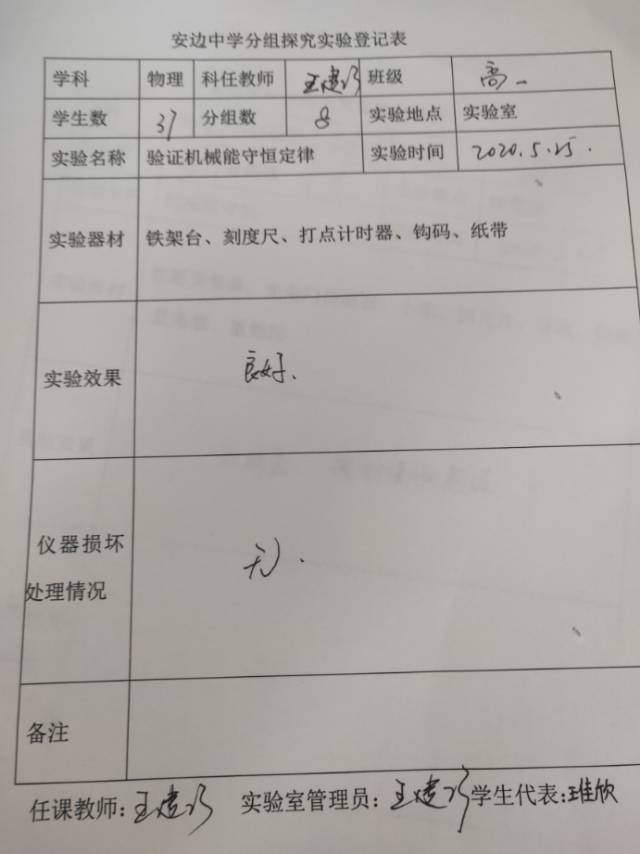 安边中学分组探究实验登记表
学科 物理 科任教师 王建 班级 高一
学生数 37 分组数 8 实验地点 实验室
实验名称 验证机械能守恒定律 实验时间 2020.5.25.
实验器材 铁架台、刻度尺、打点计时器、钩码、纸带
实验效果 良好.
仪器损坏 无.
处理情况
备注
任课教师:王建 实验室管理员:王建 学生代表: